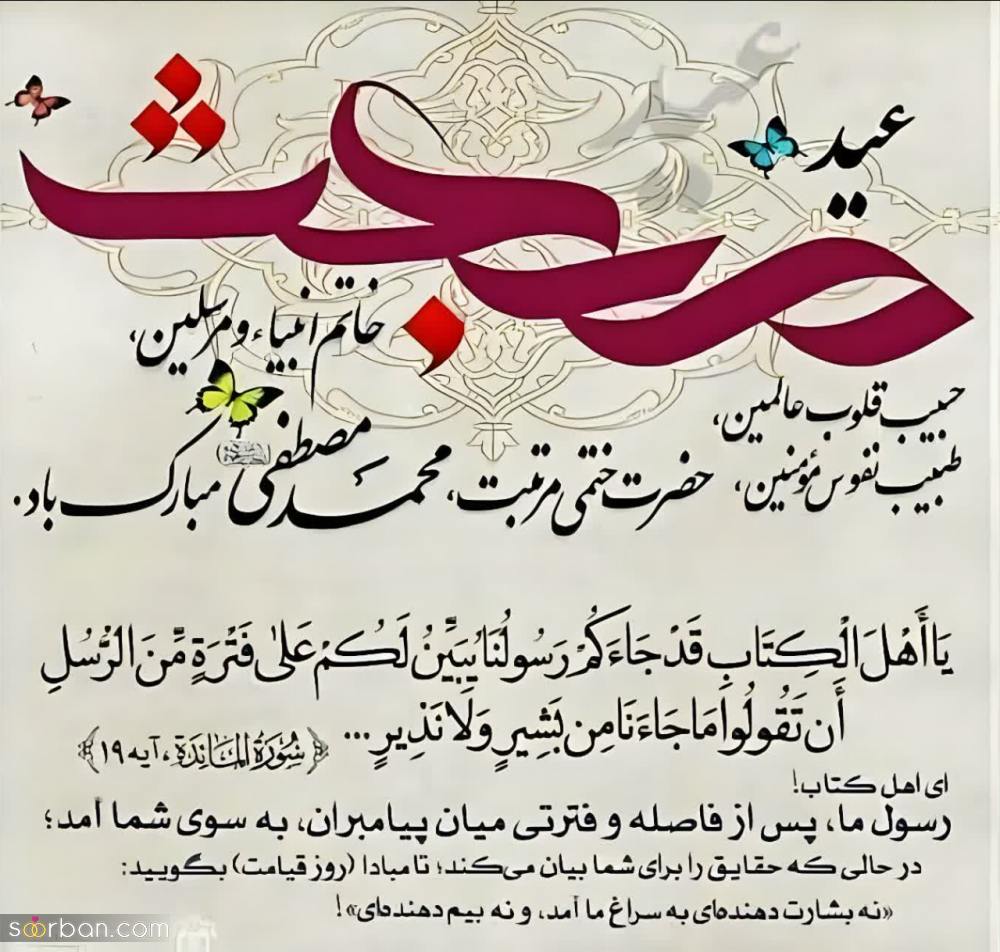 عید
مبعث
خاتم انبیاء و مرسلین،
حبیب قلوب عالمین،
طبیب نفوس مؤمنین،
حضرت ختمی مرتبت، محمد مصطفی مبارک باد.
يَا أَهْلَ الْكِتَابِ قَدْ جَاءَكُمْ رَسُولُنَا يُبَيِّنُ لَكُمْ عَلَىٰ فَتْرَةٍ مِّنَ الرُّسُلِ
أَن تَقُولُوا مَا جَاءَنَا مِن بَشِيرٍ وَلَا نَذِيرٍ ... ﴿سُورَةُ المَائِدَة، آیه ۱۹﴾
ای اهل کتاب!
رسول ما، پس از فاصله و فترتی میان پیامبران، به سوی شما آمد؛
در حالی که حقایق را برای شما بیان می‌کند؛ تا مبادا (روز قیامت) بگویید:
«نه بشارت دهنده‌ای به سراغ ما آمد، و نه بیم دهنده‌ای»!
soorban.com